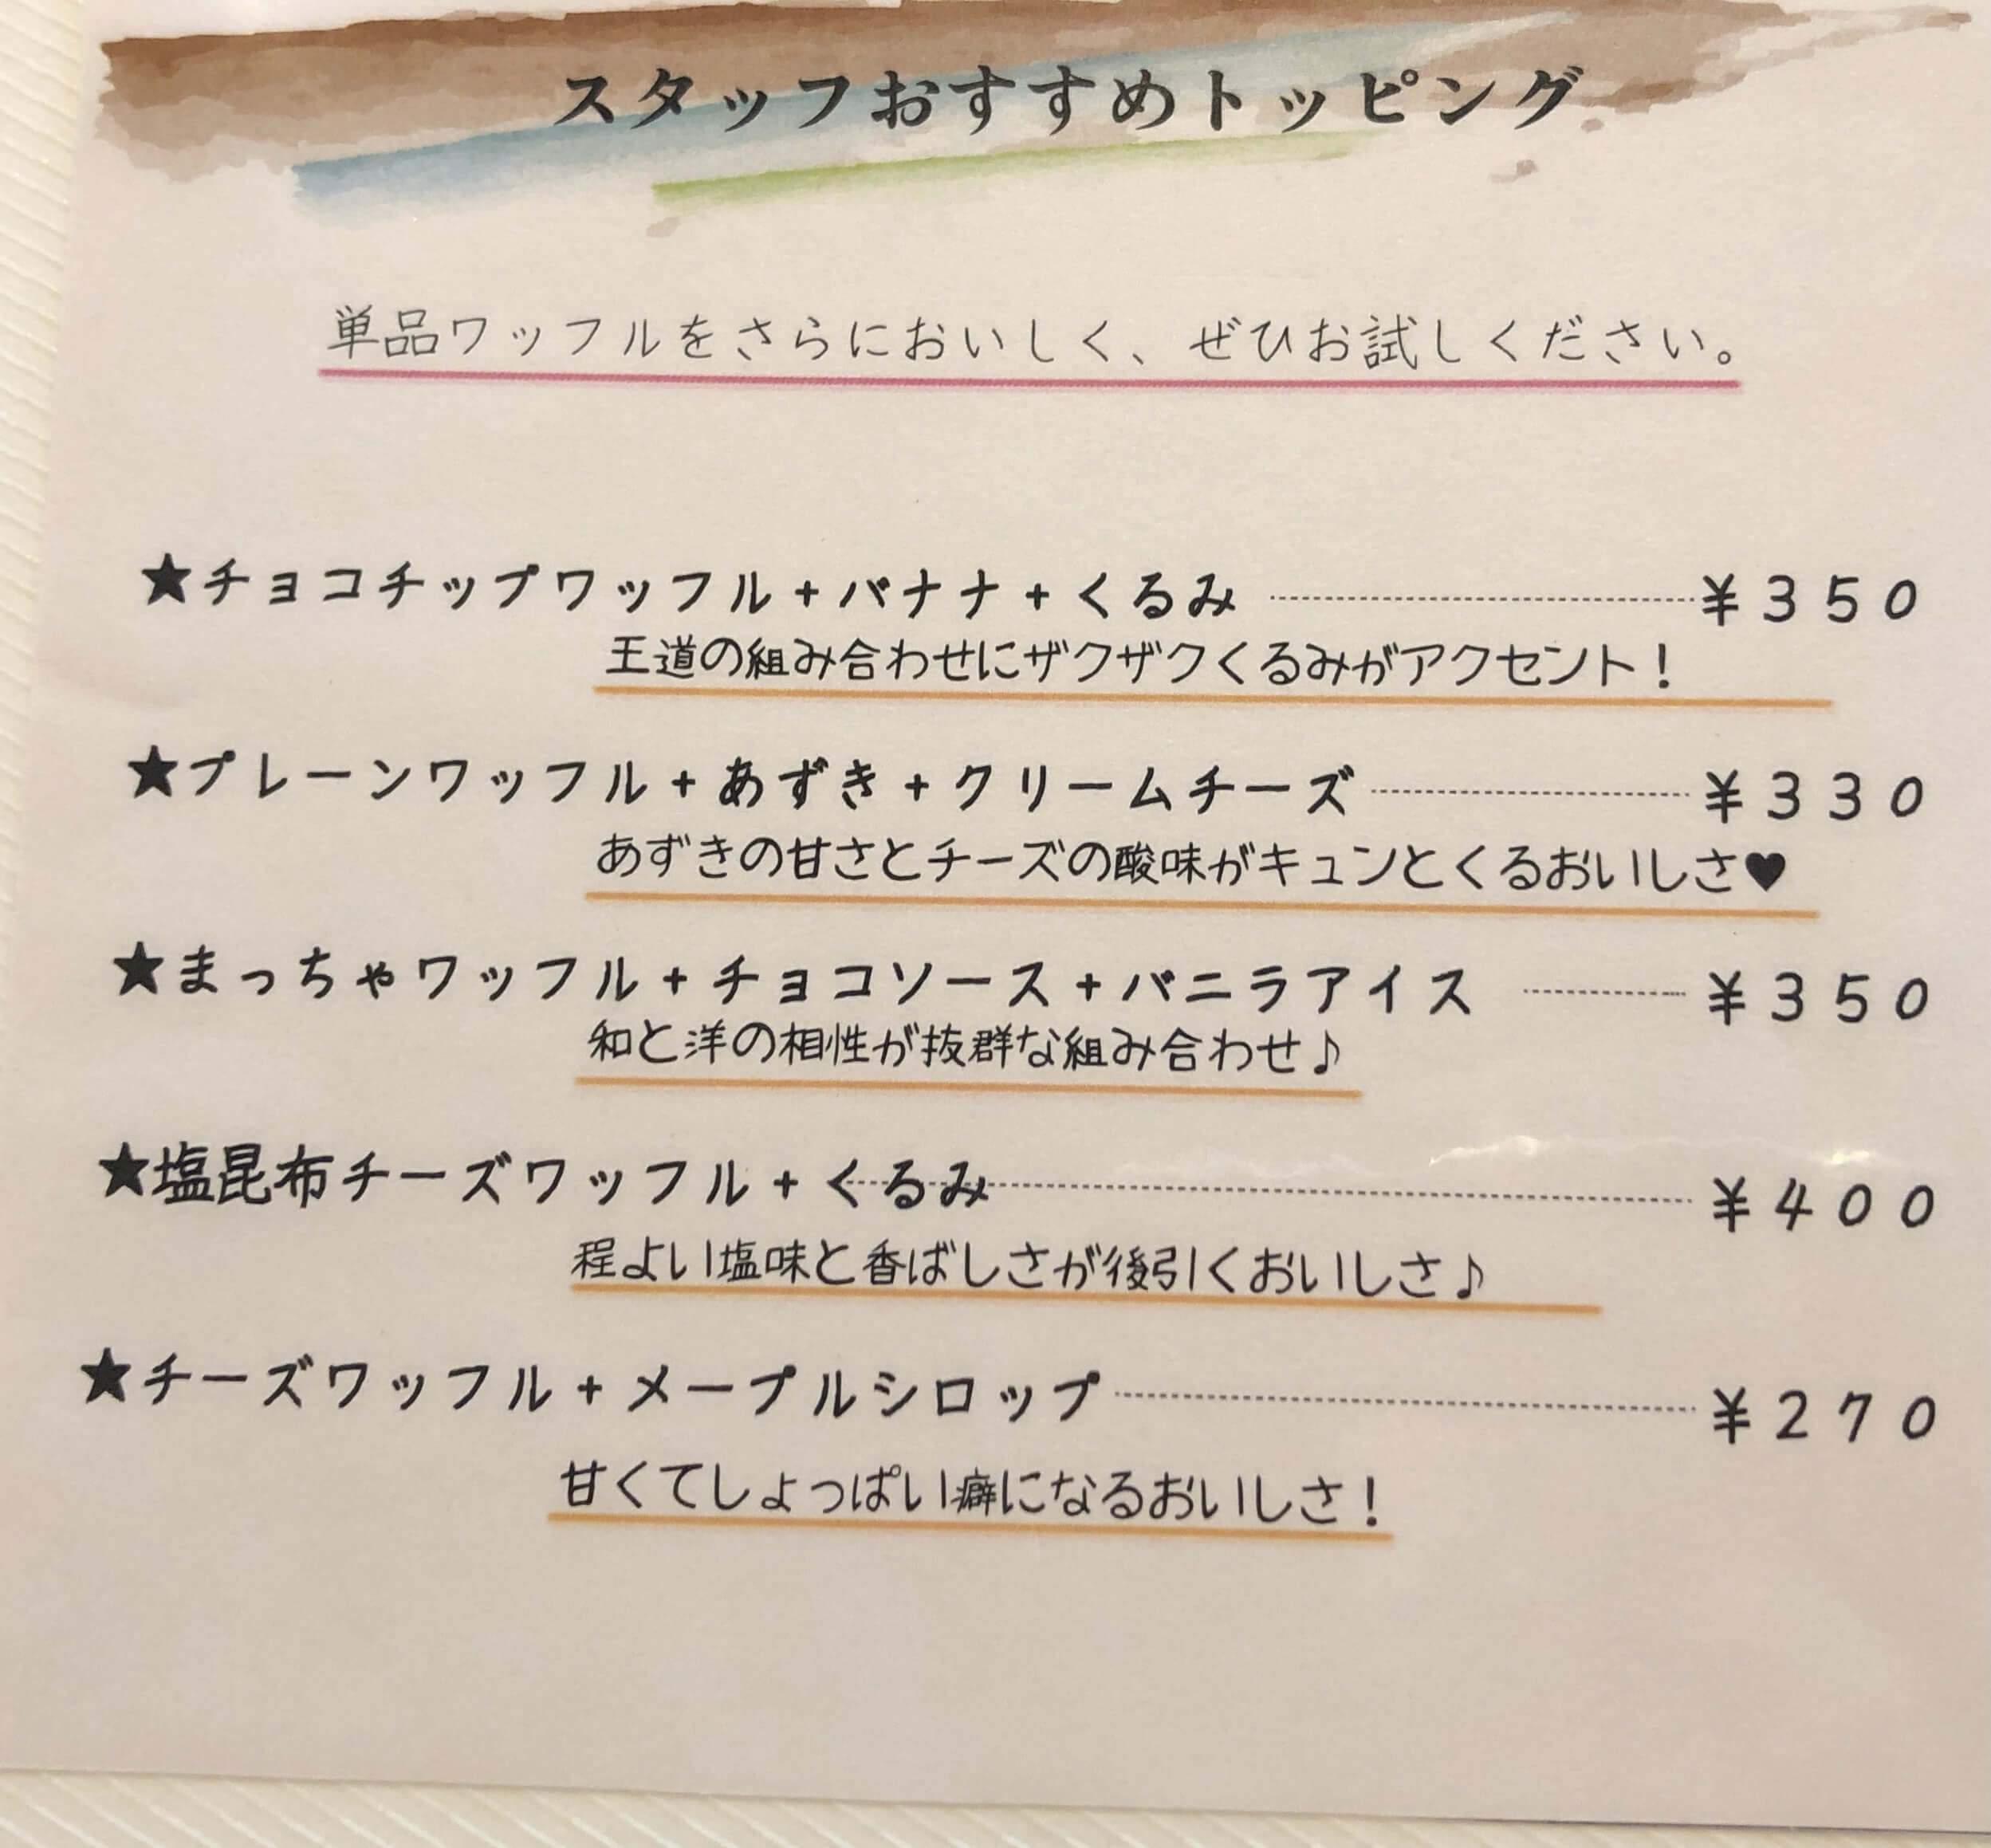 スタッフおすすめトッピング
単品ワッフルをさらにおいしく、ぜひお試しください。
★チョコチップワッフル+バナナ+くるみ ¥350
王道の組み合わせにザクザクくるみがアクセント!
★プレーンワッフル+あずき+クリームチーズ ¥330
あずきの甘さとチーズの酸味がキュンとくるおいしさ♥
★まっちゃワッフル+チョコソース+バニラアイス ¥350
和と洋の相性が抜群な組み合わせ♪
★塩昆布チーズワッフル+くるみ ¥400
程よい塩味と香ばしさが後引くおいしさ♪
★チーズワッフル+メープルシロップ ¥270
甘くてしょっぱい癖になるおいしさ!